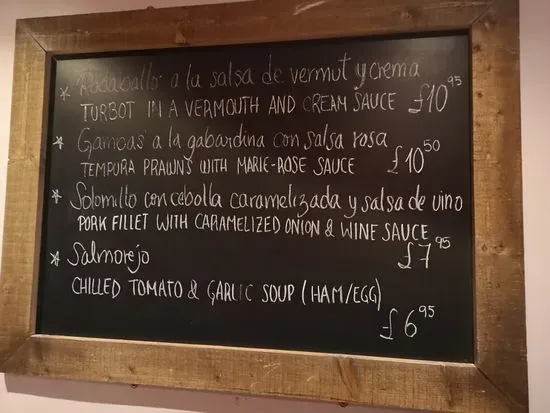 * Rodaballo a la salsa de vermut y crema
TURBOT IN A VERMOUTH AND CREAM SAUCE £10 95
* Gambas a la gabardina con salsa rosa
TEMPURA PRAWNS WITH MARIE-ROSE SAUCE £10 50
* Solomillo con cebolla caramelizada y salsa de vino
PORK FILLET WITH CARAMELIZED ONION & WINE SAUCE
£7 95
* Salmorejo
CHILLED TOMATO & GARLIC SOUP (HAM/EGG)
£6 95